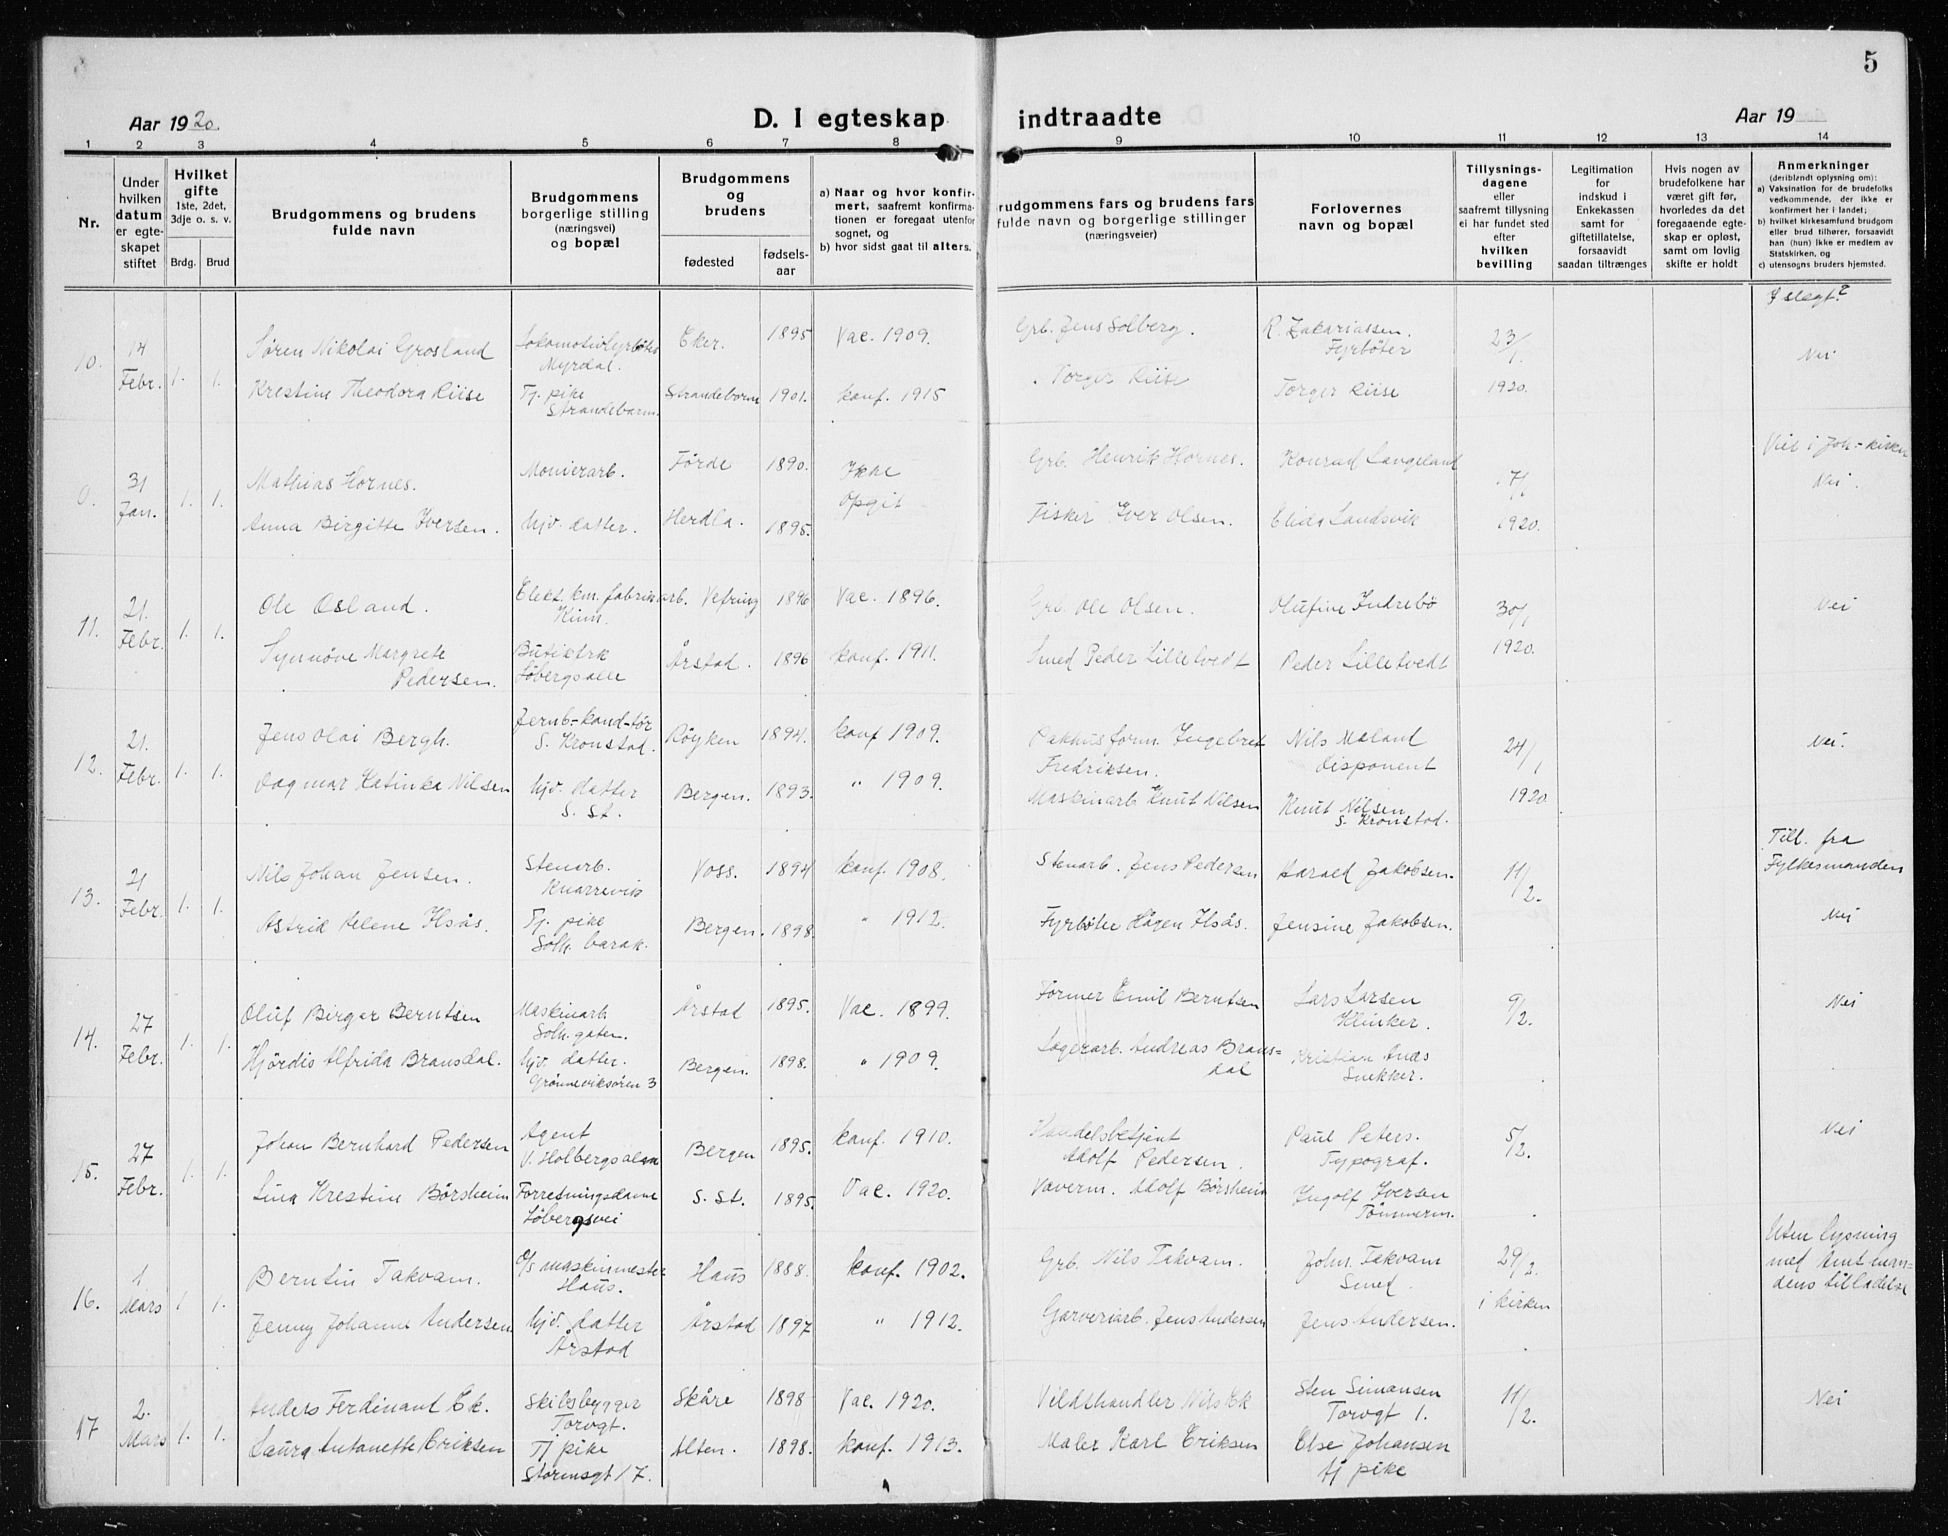 5
Aar 1920
D. I egteskap indtraadte
Aar 19
1 2 3 4 5 6 7 8 9 10 11 12 13 14
Nr.
Under hvilken datum er egteskapet stiftet
Hvilket gifte 1ste, 2det, 3dje o. s. v.
Brdg. Brud
Brudgommens og brudens fulde navn
Brudgommens borgerlige stilling (næringsvei) og bopæl
Brudgommens og brudens
fødested
fødsels-aar
a) Naar og hvor konfirmert, saafremt konfirmationen er foregaat utenfor sognet, og
b) hvor sidst gaat til alters.
rudgommens fars og brudens fars fulde navn og borgerlige stillinger (næringsveier)
Forlovernes navn og bopæl
Tillysnings-dagene eller saafremt tillysning ei har fundet sted efter hvilken bevilling
Legitimation for indskud i Enkekassen samt for giftetillatelse, forsaavidt saadan tiltrænges
Hvis nogen av brudefolkene har været gift før, hvorledes da det foregaaende egteskap er opløst, samt om lovlig skifte er holdt
Anmerkninger (deriblendt oplysning om):
a) Vaksination for de brudefolks vedkommende, der ikke er konfirmert her i landet;
b) hvilket kirkesamfund brudgom eller brud tilhører, forsaavidt han (hun) ikke er medlem av Statskirken, og
c) utensogns bruders hjemsted.
I slegt?
10. 14 Febr. 1. 1. Søren Nikolai Grosland Lokomotivfyrbøter Myrdal. Eker. 1895 Vac. 1909. Grb. Jens Solberg. R. Zakariassen. Fyrbøter 23/1. Nei
Krestine Theodora Riise Tj. pike Strandebarm. Strandebarm 1901. konf. 1915 Torger Riise Torger Riise 1920.
9. 31 Jan. 1. 1. Mathias Hornes. Monierarb. Førde 1890. Ikke Opgit Grb. Henrik Hornes. Konrad Langeland 17/1 Viet i Joh-kirken Nei.
Anna Birgitte Iversen. hjv. datter. Herdla. 1895. Fisker Iver Olsen. Elida Landsvik 1920.
11. 21. Febr. 1. 1. Ole Osland. Elekt. km. fabrikarb. Kinn. Vefring 1896 Vac. 1896. Grb. Ole Olsen. Olufine Indrebø 30/1 Nei
Synnøve Margrete Pedersen. Butikbrk Løbergsalle Årstad. 1896 konf. 1911. Smed Peder Lilletvedt Peder Lilletvedt 1920.
12. 21. Febr. 1. 1. Jens Olai Bergh. Jernb-kond-tør S. Kronstad. Røyken 1894. konf 1909. Pakhusform. Ingebret Fredriksen. Nils Møland disponent 24/1 Nei.
Dagmar Katinka Nilsen hjv. datter S. St. Bergen. 1893. " 1909. Maskinarb Knut Nilsen Knut Nilsen S. Kronstad. 1920
13. 21 Febr. 1. 1. Nils Johan Jensen. Stenarb. Knarrevik Voss. 1894 konf. 1908. Stenarb. Jens Pedersen Harald Jakobsen. 11/2. Till. fra Fylkesmanden
Astrid Helene Ilsås. Tj. pike Solh. barak. Bergen. 1898. " 1912. Fyrbøter Hågen Ilsås. Jensine Jakobsen. Nei
14. 27 Febr. 1. 1. Oluf Birger Berntsen Maskinarb Solh.gaten. Årstad 1895. Vac. 1899. Former Emil Berntsen Lars Larsen Klinker. 9/2. Nei
Hjørdis Alfrida Bransdal. hjv. datter. Grønneviksøren 3 Bergen. 1898. " 1909. Lagerarb. Andreas Bransdal Kristian Ands Snekker.
15. 27 Febr. 1. 1. Johan Bernhard Pedersen Agent V. Holbergsalm Bergen 1895. konf. 1910. Handelsbetjent Adolf Pedersen. Paul Peters. Typograf. 5/2. Nei
Lina Krestine Børsheim Forretningsdame Løbergsvei S. St. 1895. Vac. 1920. Vaverm. Adolf Børsheim Ingolf Iversen Tømmerm.
16. 1 Mars 1 1. Berntin Takvam. O/s maskinmester Haus. Haus 1888. konf. 1902. Grb. Nils Takvam. John. Takvam Smed. 29/2. i kirken Uten lysning med Amtmandens tilladelse
Jenny Johanne Andersen hjv. datter Årstad Årstad 1897 " 1912. Garveriarb. Jens Andersen Jens Andersen.
17 2. Mars 1. 1. Anders Ferdinand Ek. Skibsbygger Torvgt. Skåre 1898 Vac. 1920. Vildthandler Nils Ek Sten Simonsen Torvgt 1. 11/2. Nei
Laura Antonette Eriksen Tj pike Stormsgt 17. Alten. 1898. konf. 1913. Maler Karl Eriksen Else Johansen tj pike